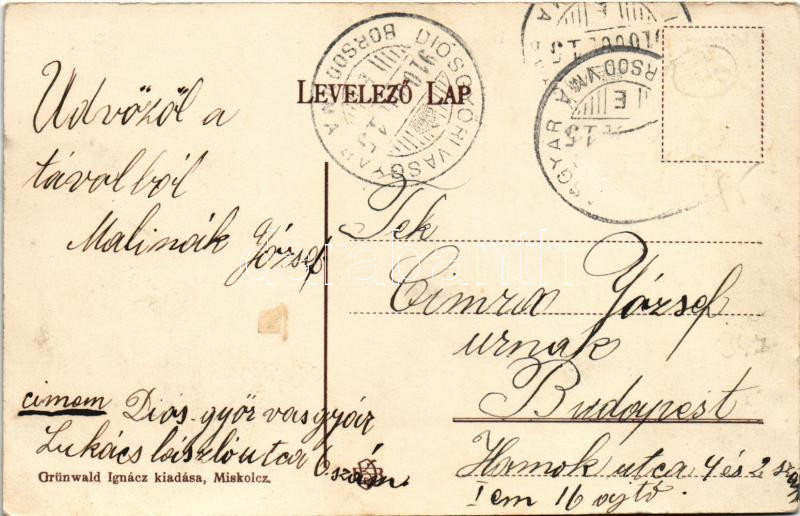 LEVELEZŐ LAP
DIÓSGYŐRI VASGYÁR
BORSOD VM.
Üdvözöl a
távolból
Malinák József
cimem Diós-győr vasgyár
Lukács lászló utca 6 szám.
Grünwald Ignácz kiadása, Miskolcz.
Tek
Cimra József
urnak
Budapest
Homok utca 4 és 2 szám
I em 16 ajtó.